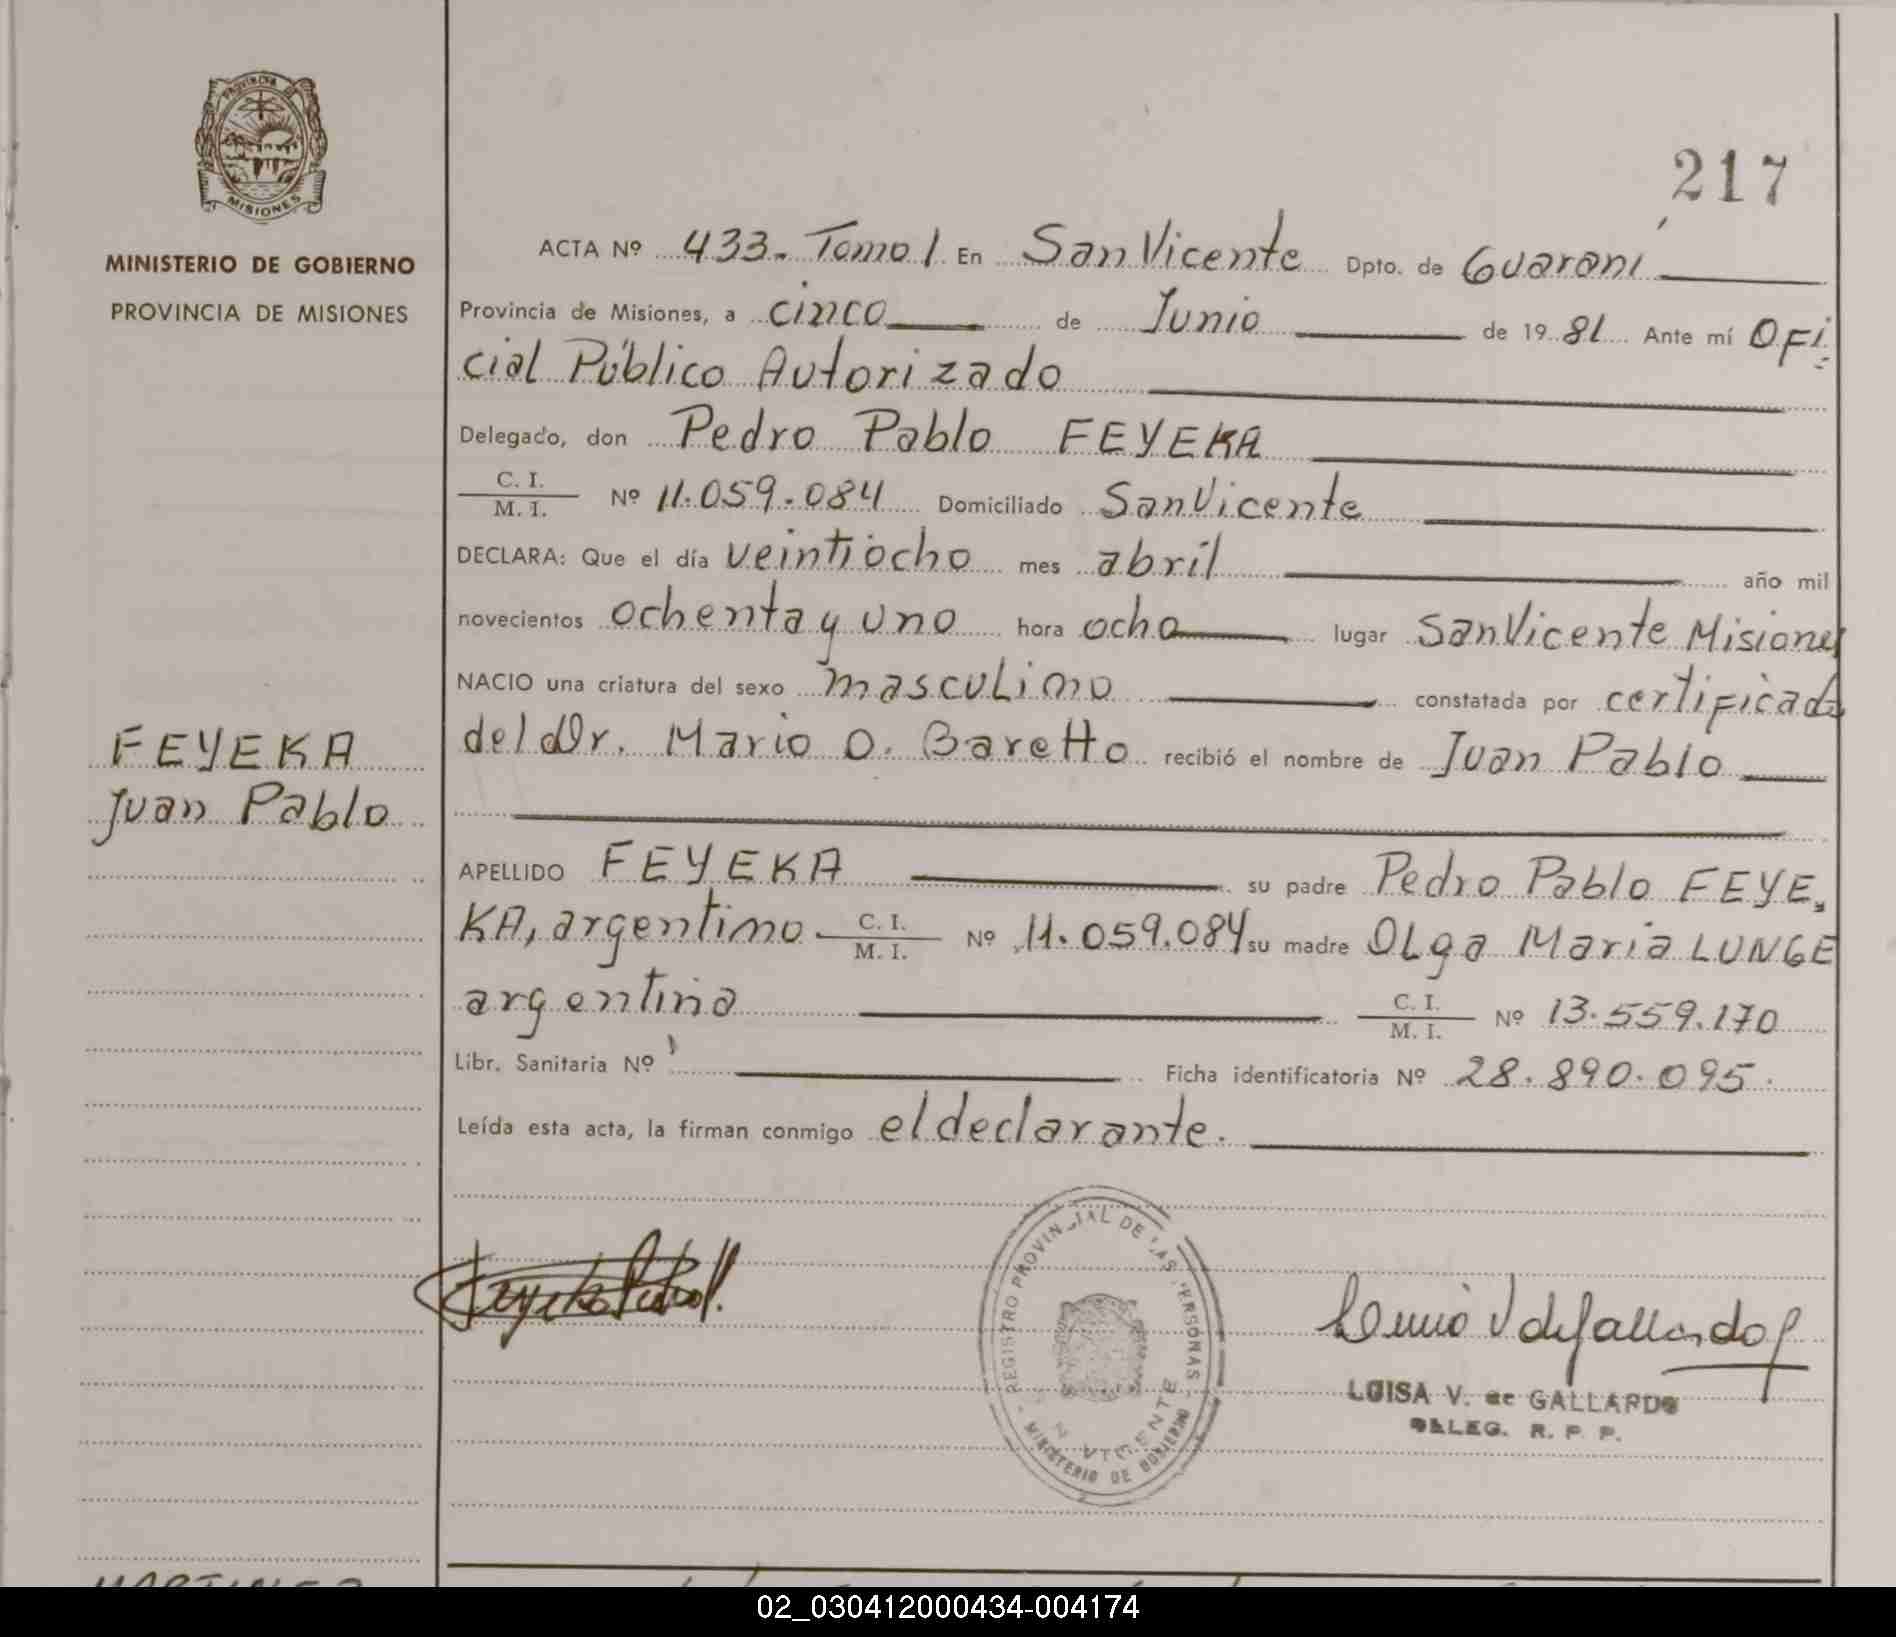 PROVINCIA DE
MISIONES
MINISTERIO DE GOBIERNO
PROVINCIA DE MISIONES
FEYEKA
Juan Pablo
217
ACTA Nº 433. Tomo I En San Vicente Dpto. de Guaraní
Provincia de Misiones, a cinco de Junio de 1981 Ante mí Ofi
cial Público Autorizado
Delegado, don Pedro Pablo FEYEKA
C. I.
M. I. Nº 11.059.084 Domiciliado San Vicente
DECLARA: Que el día veintiocho mes abril año mil
novecientos ochenta y uno hora ocho lugar San Vicente Misiones
NACIO una criatura del sexo masculino constatada por certificado
del Dr. Mario O. Baretto recibió el nombre de Juan Pablo
APELLIDO FEYEKA su padre Pedro Pablo FEYE
KA, argentino C. I. M. I. Nº 11.059.084 su madre Olga Maria LUNGE
argentina C. I. M. I. Nº 13.559.170
Libr. Sanitaria Nº Ficha identificatoria Nº 28.890.095.
Leída esta acta, la firman conmigo el declarante.
REGISTRO PROVINCIAL DE LAS PERSONAS
MINISTERIO DE GOBIERNO
LUISA V. de GALLARDO
DELEG. R. P. P.
02_030412000434-004174